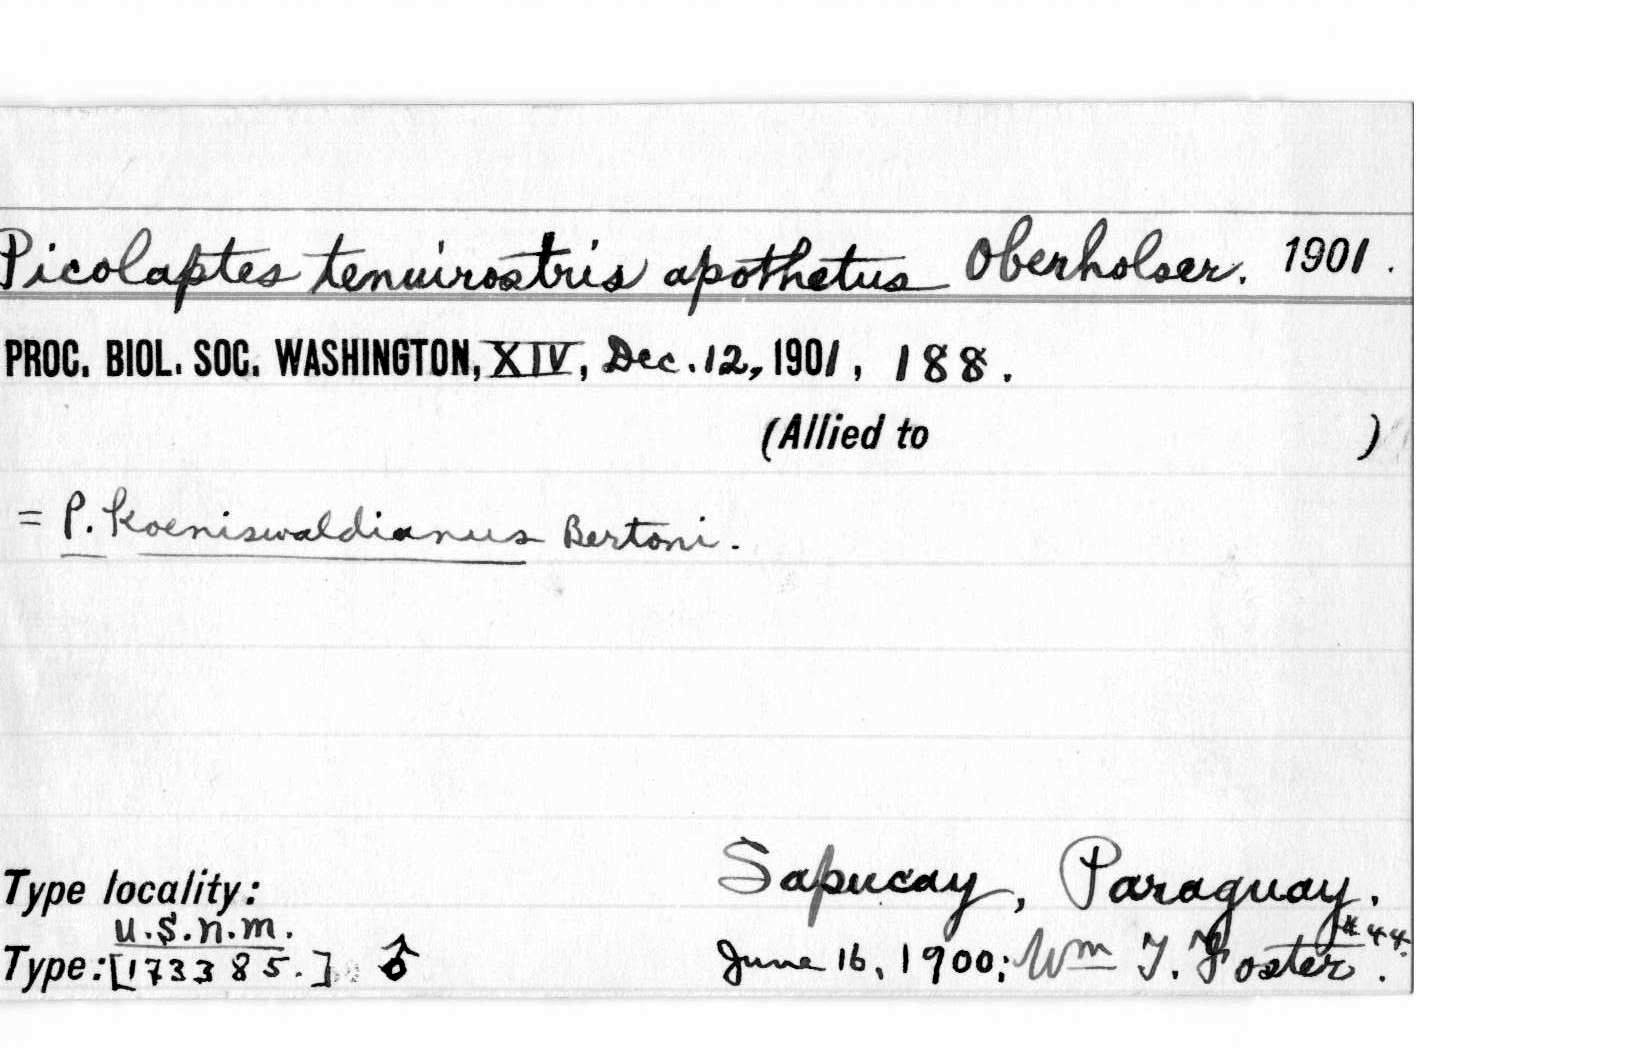 Picolaptes tenuirostris apothetus Oberholser. 1901.
PROC. BIOL. SOC. WASHINGTON, XIV, Dec. 12, 1901, 188.
(Allied to )
= P. Koeniswaldianus Bertoni.
Type locality: Sapucay, Paraguay.
U.S.N.M. #44.
Type: [173385.] ♂ June 16, 1900; Wm T. Foster.